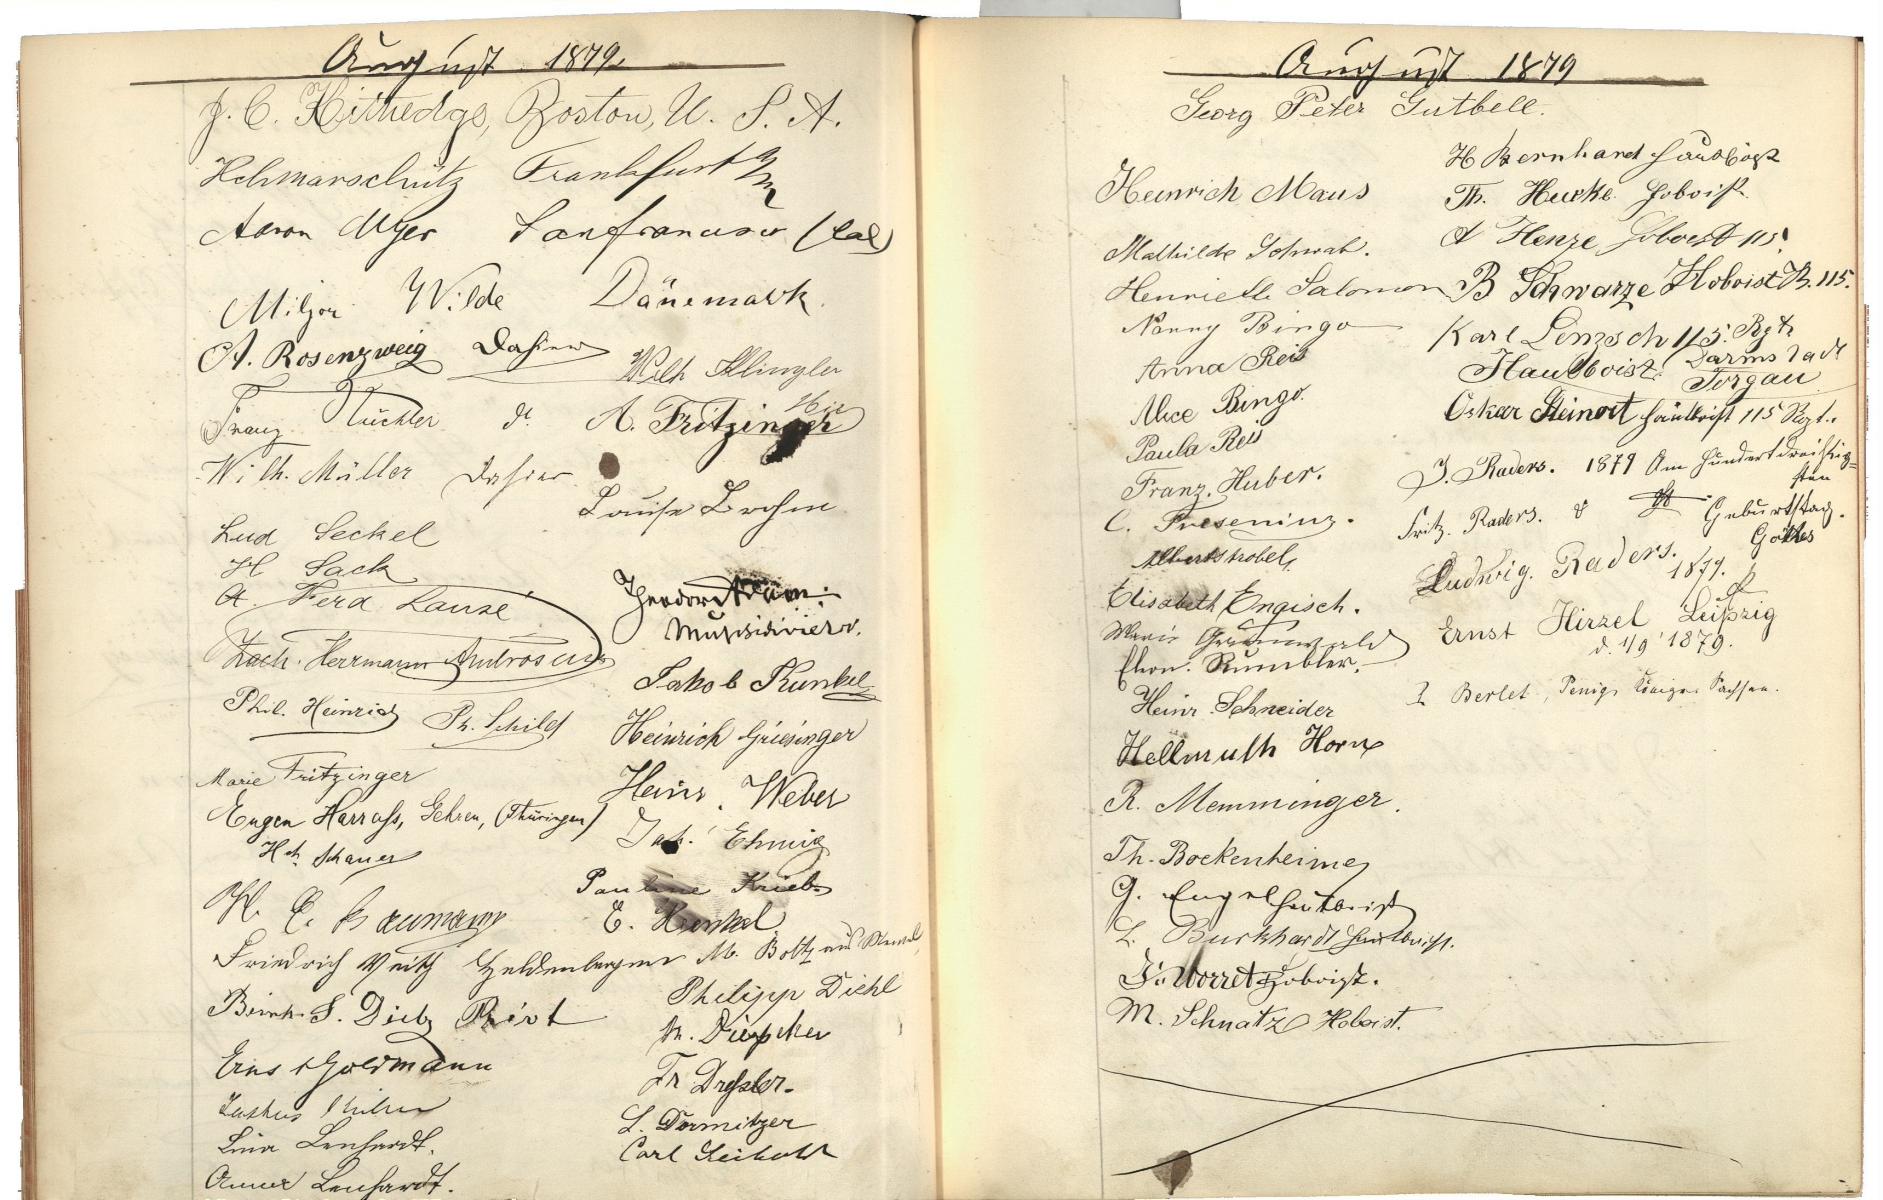 August 1879
J. C. Kittredge, Boston, U. S. A.
Helmarschütz Frankfurt a/M
Aaron Myer Sanfrancisco (Cal)
Wilde Dänemark.
A. Rosenzweig Dahier
Wilh Klingler
Franz Tüchler dt. A. Fritzinger Hier
Wilh. Müller Dahier
Louise Brohm
Lud Seckel
H Sack
A. Ferd Lausé
Theodor
Musshinier.
Zach. Herrmann Ambrosius
Jakob Kunkel
Phil. Heinrich Ph. Schild
Heinrich Griesinger
Marie Fritzinger
Heinr. Weber
Eugen Harrass, Gehren, (Thüringen)
Jak. Ehmig
Hch Schauer
Pauline Krieb
H. C. Baumann
E. Henkel
Friedrich Veith Heldenbergen M. Boltz aus
Philipp Diehl
S. Dietz
Ernst Goldmann
Fr Dressler.
Justus
L. Dormitzer
Lina Lenhardt.
Carl Seibold
Anna Lenhardt.
August 1879
Georg Peter Gutbell.
H Bernhard Hautboist
Heinrich Maus
Th. Hucke Hoboist.
A Henze Hoboist 115.
Mathilde Schwab.
Henriette Salomon
B Schwarze Hoboist R. 115.
Nanny Bingo
Karl Lenzsch 115. Rgt.
Hautboist. Darmstadt
Anna Reis
Torgau
Alice Bingo.
Oskar Steinort Hautboist 115 Rgt.
Paula Reis
J. Raders. 1879 Am hundertdreißig=
sten
Franz. Huber.
Fritz. Raders. Geburtstag.
C. Fresenius.
Göthes
Albertstrobel.
Ludwig. Raders.
1879.
Elisabeth Engisch.
Ernst Hirzel Leipzig
Marie Grünewald
d. 1/9 1879.
Chr. Rumbler.
Berlet, Penig, Königr. Sachsen.
Heinr. Schneider
Hellmuth Horn
R. Memminger.
Th. Bockenheimer
G. Engel Hautboist
L. Burkhardt Hautboist.
J. Worret Hoboist.
M. Schnatz Hoboist.